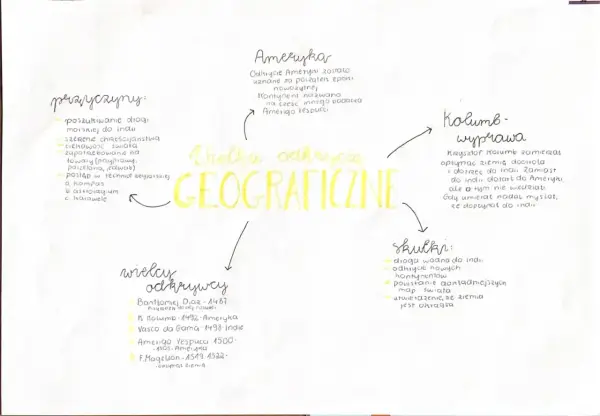 Wielkie odkrycia
GEOGRAFICZNE
Ameryka
Odkrycie Ameryki zostało
uznane za początek epoki
nowożytnej
Kontynent nazwano
na cześć innego badacza
Amerigo Vespucci
Kolumb -
wyprawa
Krzysztof Kolumb zamierzał
opłynąć ziemię dookoła
i dotrzeć do Indii. Zamiast
do Indii dotarł do Ameryki,
ale o tym nie wiedział.
Gdy umierał nadal myślał,
że dopłynął do Indii
skutki:
droga wodna do Indii
odkrycie nowych
kontynentów
powstanie dokładniejszych
map świata
utwierdzenie, że ziemia
jest okrągła
wielcy
odkrywcy
Bartłomiej Diaz - 1487
K. Kolumb - 1492 - Ameryka
Vasco da Gama - 1498 Indie
Amerigo Vespucci 1500
F. Magellan - 1519 1522 -
przyczyny:
poszukiwanie drogi
morskiej do Indii
szerzenie chrześcijaństwa
ciekawość świata
zapotrzebowanie na
towary (przyprawy,
porcelana, jedwab)
postęp w technice żeglarskiej
a. kompas
b. astrolabium
c. karawele